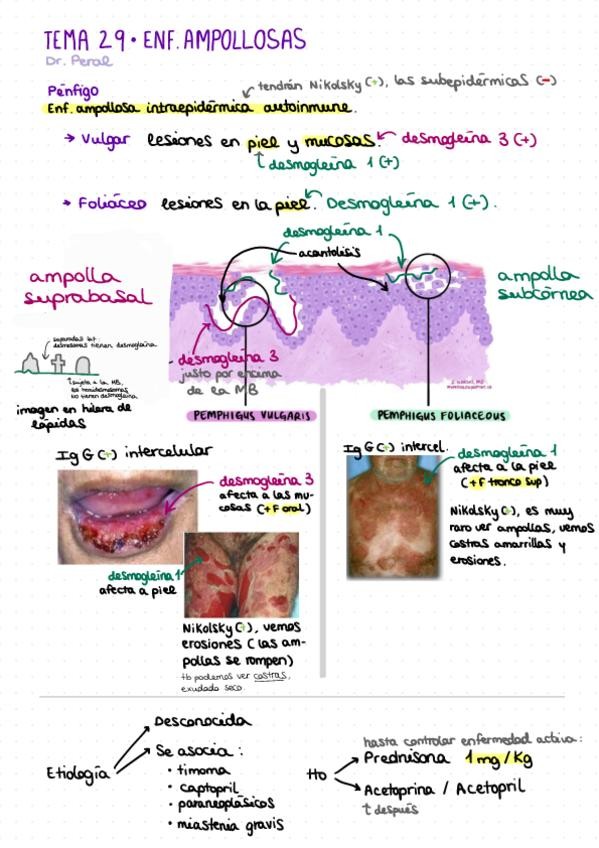 TEMA 29 • ENF. AMPOLLOSAS
Dr. Peral
Pénfigo
tendrán Nikolsky (+), las subepidérmicas (-)
Enf. ampollosa intraepidérmica autoinmune.
→ Vulgar lesiones en piel y mucosas. desmogleína 3 (+)
desmogleína 1 (+)
→ Foliáceo lesiones en la piel. Desmogleína 1 (+).
desmogleína 1
acantolisis
ampolla
suprabasal
ampolla
subcórnea
desmosomas tienen desmogleína
sujeta a la MB,
los hemidesmosomas
no tienen desmogleína
imagen en hilera de
lápidas
desmogleína 3
justo por encima
de la MB
PEMPHIGUS VULGARIS
PEMPHIGUS FOLIACEOUS
Ig G (+) intercelular
desmogleína 3
afecta a las mu-
cosas (+F oral)
desmogleína 1
afecta a piel
Nikolsky (+), vemos
erosiones (las am-
pollas se rompen)
tb podemos ver costras,
exudado seco.
Ig G (+) intercel.
desmogleína 1
afecta a la piel
(+F tronco sup)
Nikolsky (+), es muy
raro ver ampollas, vemos
costras amarillas y
erosiones.
Etiología
Desconocida
Se asocia :
• timoma
• captopril
• paraneoplásicos
• miastenia gravis
tto
hasta controlar enfermedad activa:
Prednisona 1 mg/Kg
Acetoprina / Acetopril
después